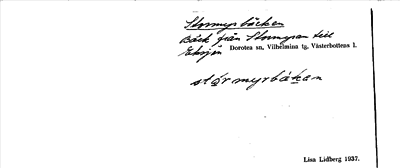 Stormyrbäcken
Bäck från Stormyran till
Dorotea sn, Vilhelmina tg, Västerbottens l.
stórmyrbäkan
Lisa Lidberg 1937.